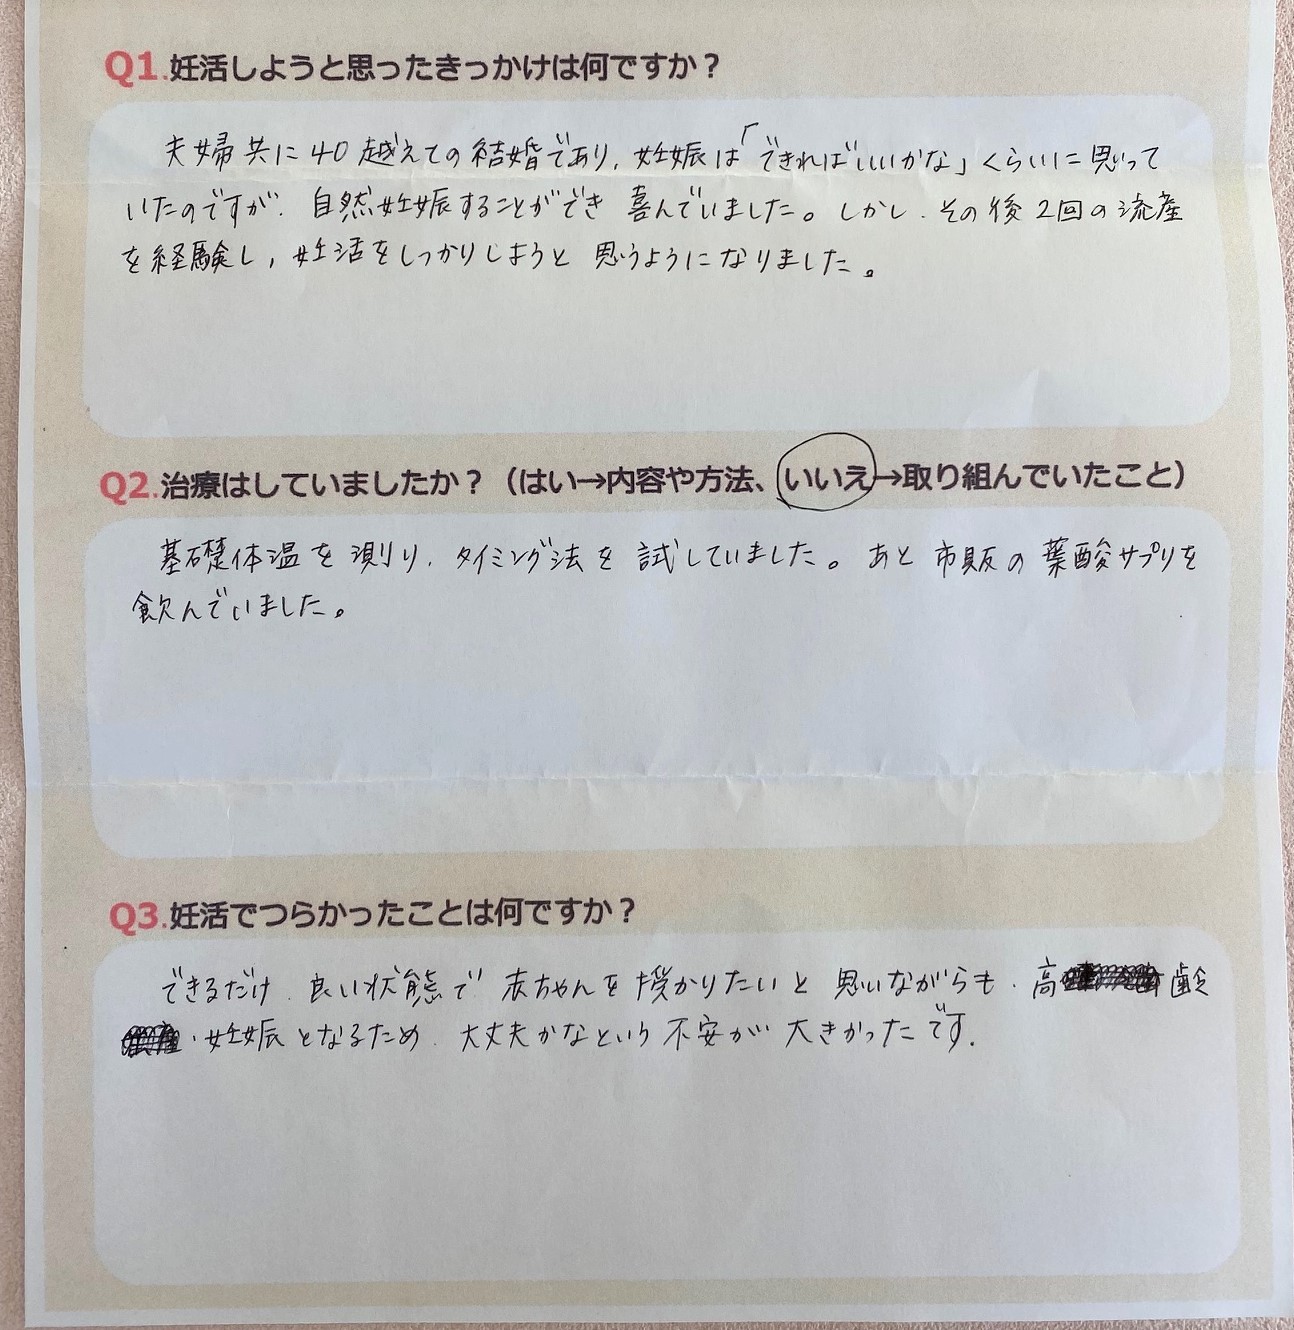 Q1.妊活しようと思ったきっかけは何ですか？
夫婦共に40越えての結婚であり、妊娠は「できればいいかな」くらいに思って
いたのですが、自然妊娠することができ 喜んでいました。しかし、その後2回の流産
を経験し、妊活をしっかりしようと 思うようになりました。
Q2.治療はしていましたか？（はい→内容や方法、いいえ→取り組んでいたこと）
基礎体温を測り、タイミング法を試していました。あと市販の葉酸サプリを
飲んでいました。
Q3.妊活でつらかったことは何ですか？
できるだけ、良い状態で赤ちゃんを授かりたいと思いながらも、高齢
妊娠となるため、大丈夫かなという不安が大きかったです。